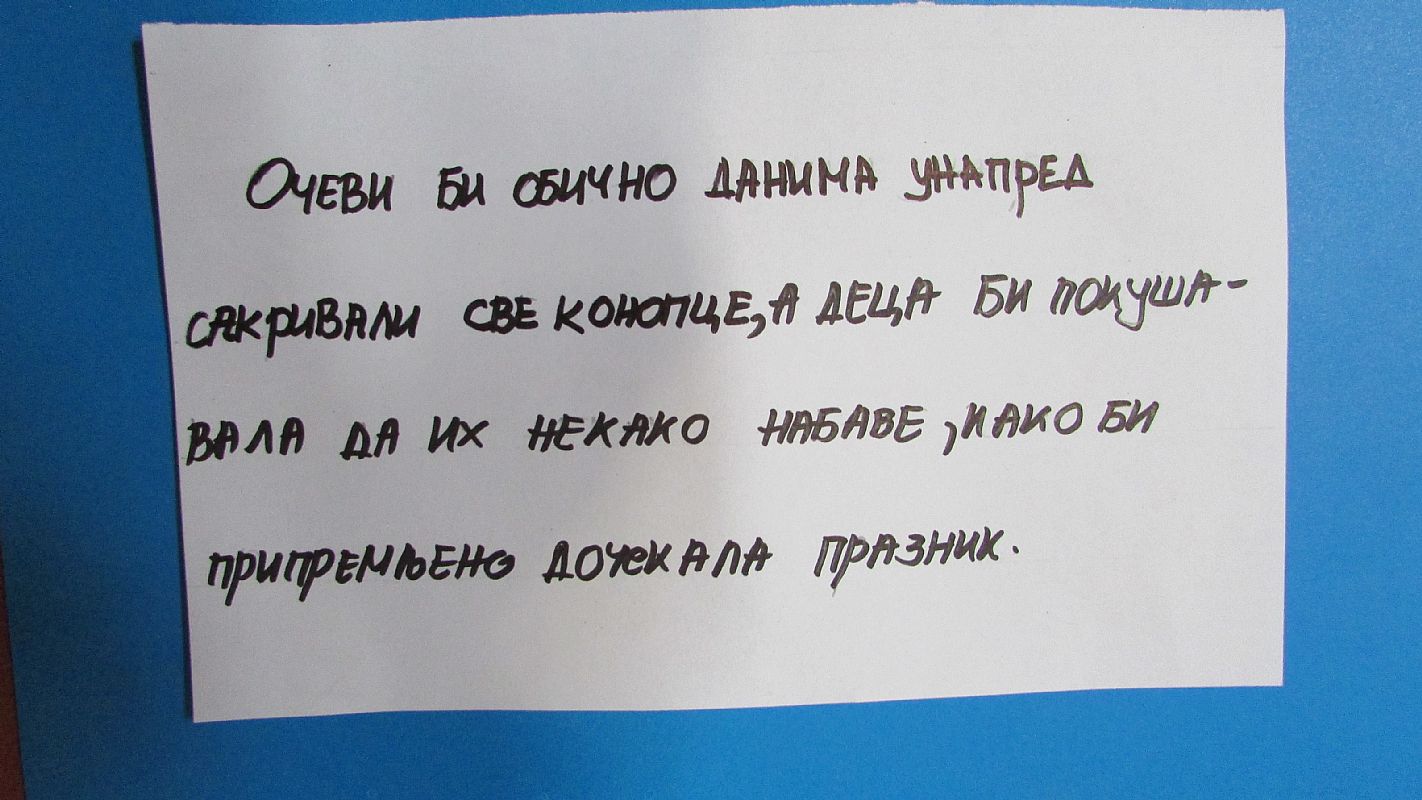 Очеви би обично данима унапред
сакривали све конопце, а деца би покуша-
вала да их некако набаве, како би
припремљено дочекала празник.